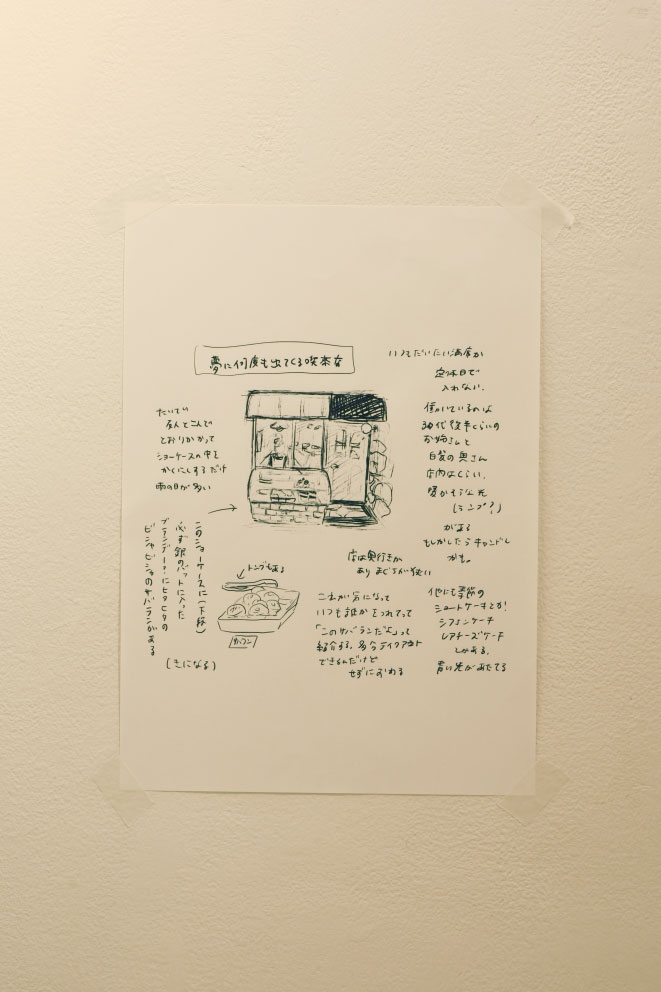 夢に何度も出てくる喫茶店
いつもだいたい満席か
定休日で
入れない。
働いているのは
30代後半くらいの
お姉さんと
白髪の奥さん
店内はくらい。
暖かそうな光
(ランプ?)
がある
もしかしたらキャンドル
かも。
たいてい
友人とこんで
とおりかかって
ショーケースの中を
かくにんするだけ
雨の日が多い
このショーケースに(下段)
必ず銀のバットに入った
ブランデーにヒタヒタの
ビシャビシャのサバランがある
(きになる)
トングもある
サバラン
店は奥行きが
あり まぐちが狭い
これが気になって
いつも誰かをつれてって
「このサバランだよ」って
紹介する。多分テイクアウト
できるんだけど
せずにおわる
他にも季節の
ショートケーキとか
シフォンケーキ
レアチーズケーキ
とかある。
青い光があたってる